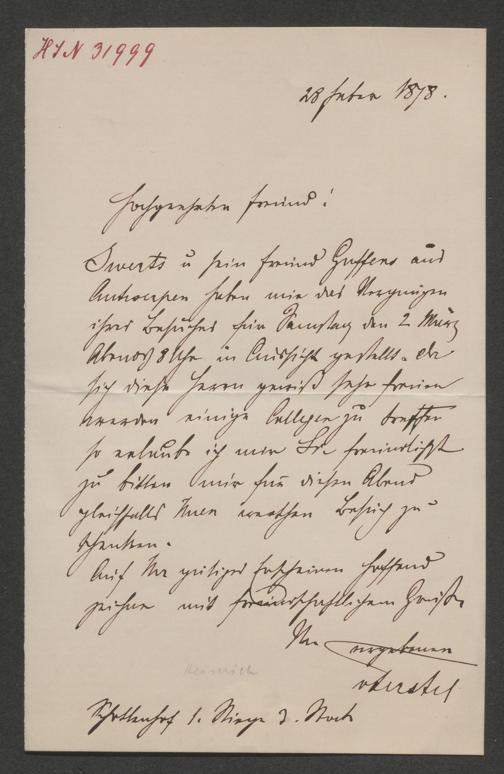 HIN 31999
28 Feber 1878.
Hochgeehrter Freund!
Swerts u sein Freund Guffens aus
Antwerpen haben mir das Vergnügen
ihres Besuches für Samstag den 2. März
Abends 8 Uhr in Aussicht gestellt. da
sich diese Herren gewiß sehr freuen
werden einige Collegen zu treffen
so erlaube ich mir Sie freundlichst
zu bitten mir für diesen Abend
gleichfalls Ihren werthen Besuch zu
schenken.
Auf Ihr gütiges Erscheinen hoffend
zeichne mit freundschaftlichem Gruße
Ihr ergebener
Heinrich
Schottenhof 1. Stiege 3. Stock